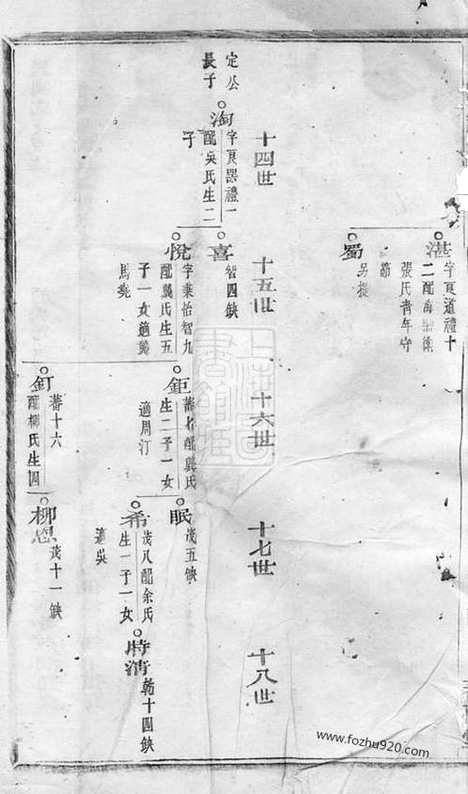 湛
字夏道禮十
張氏青年守
節
蜀
另提
十四世
十五世
十六世
十七世
十八世
定公
長子
淘
字夏器禮一
配吳氏生二
子
喜
智四缺
悅
字秉怡智九
配龔氏生五
子一女適龔
馬堯
鉅
生二子一女
適周汀
釘
蕃十六
配柳氏生四
眠
茂五缺
希
茂八配余氏
生一子一女
適吳
柳恩
茂十一缺
時清
乾十四缺
www.fozhu920.com